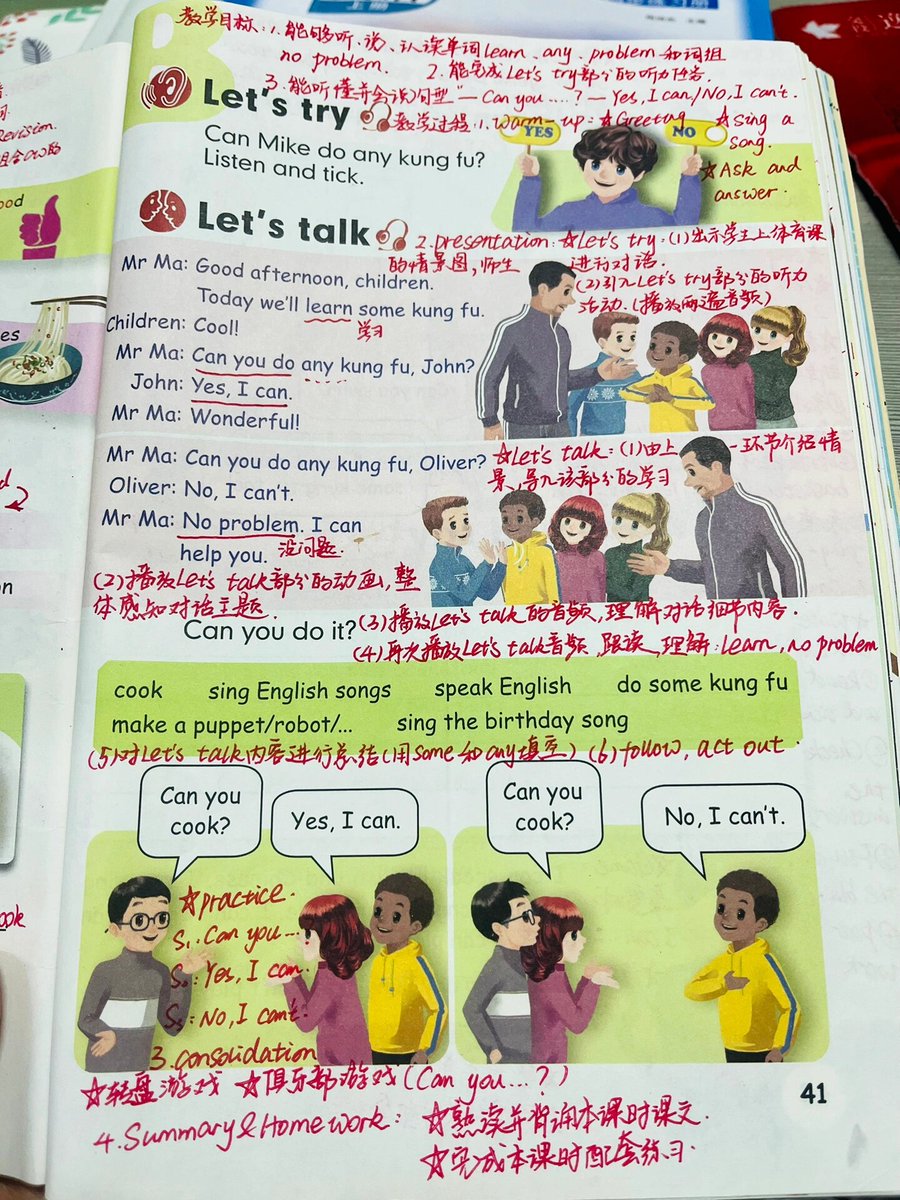 上册
教学目标:1.能够听、说、认读单词learn、any、problem和词组
no problem. 2.能完成Let's try部分的听力任务.
3.能听懂并会说句型"—Can you ....? —Yes, I can/No, I can't.
B
Let's try
教学过程:1.Warm-up:☆Greeting ☆Sing a
song.
YES
NO
☆Ask and
answer.
Can Mike do any kung fu?
Listen and tick.
Let's talk
2.presentation:☆Let's try:(1)出示学生上体育课
的情景图,师生进行对话.
(2)引入Let's try部分的听力
活动.(播放两遍音频)
Mr Ma: Good afternoon, children.
Today we'll learn some kung fu.
学习
Children: Cool!
Mr Ma: Can you do any kung fu, John?
John: Yes, I can.
Mr Ma: Wonderful!
Mr Ma: Can you do any kung fu, Oliver?
☆Let's talk:(1)由上一环节介绍情
景,导入该部分的学习
Oliver: No, I can't.
Mr Ma: No problem. I can
help you.
没问题.
(2)播放Let's talk部分的动画,整
体感知对话主题.
(3)播放Let's talk的音频,理解对话细节内容.
Can you do it?
(4)再次播放Let's talk音频,跟读,理解:learn, no problem
cook sing English songs speak English do some kung fu
make a puppet/robot/... sing the birthday song
(5)对Let's talk内容进行总结(用some和any填空) (6)follow, act out.
Can you
cook?
Yes, I can.
Can you
cook?
No, I can't.
☆practice.
S₁: Can you...
S₂: Yes, I can.
S₃: No, I can't.
3.consolidation
☆转盘游戏 ☆俱乐部游戏(Can you...?)
4.Summary&Homework: ☆熟读并背诵本课时课文.
☆完成本课时配套练习.
41
Revision.
ood
es
on
ook